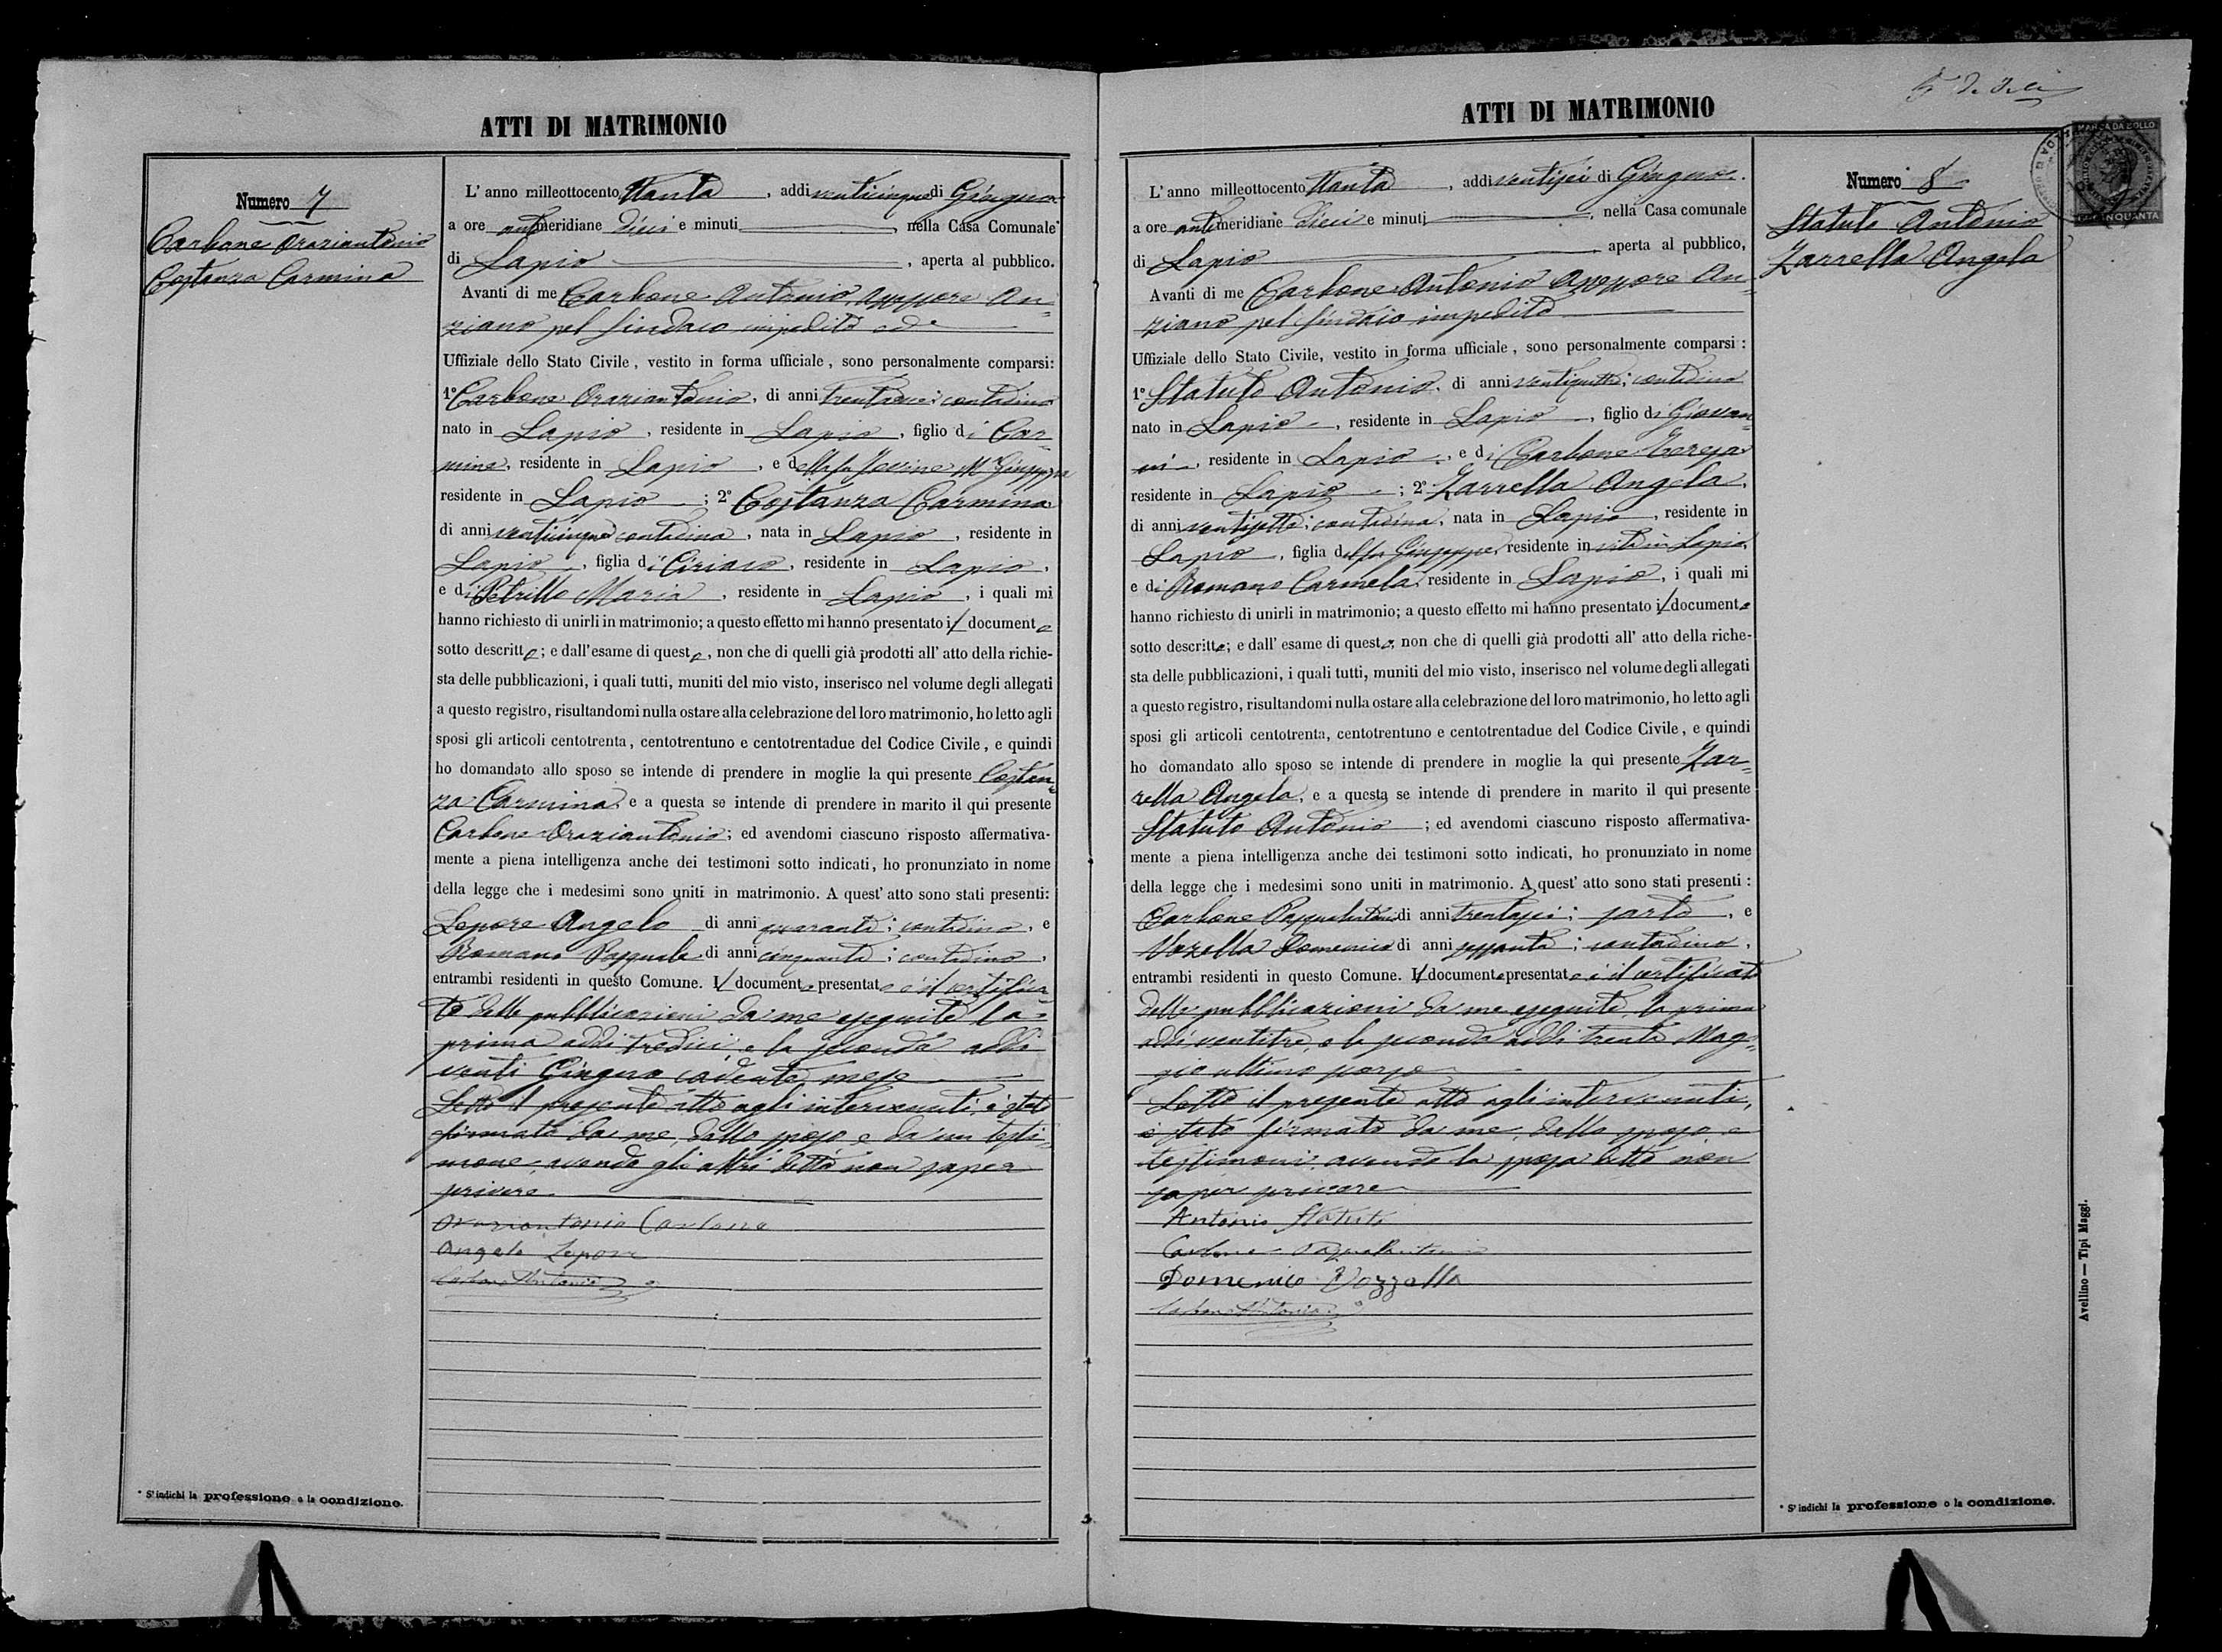 ATTI DI MATRIMONIO
Numero 7
Carbone Oraziantonio
Costanza Carmina
L' anno milleottocento ottanta, addi venticinque di Giugno
a ore antimeridiane dieci e minuti, nella Casa Comunale
di Lapio, aperta al pubblico.
Avanti di me Carbone Antonio Assessore An=
ziano pel Sindaco impedito ed
Uffiziale dello Stato Civile, vestito in forma ufficiale, sono personalmente comparsi:
1° Carbone Oraziantonio, di anni contadino
nato in Lapio, residente in Lapio, figlio di Car=
mine, residente in Lapio, e della fu M. Giuseppa
residente in Lapio; 2° Costanza Carmina
di anni venticinque contadina, nata in Lapio, residente in
Lapio, figlia di Ciriaco, residente in Lapio,
e di Petrillo Maria, residente in Lapio, i quali mi
hanno richiesto di unirli in matrimonio; a questo effetto mi hanno presentato il documento
sotto descritto; e dall' esame di questo, non che di quelli già prodotti all' atto della richie-
sta delle pubblicazioni, i quali tutti, muniti del mio visto, inserisco nel volume degli allegati
a questo registro, risultandomi nulla ostare alla celebrazione del loro matrimonio, ho letto agli
sposi gli articoli centotrenta, centotrentuno e centotrentadue del Codice Civile, e quindi
ho domandato allo sposo se intende di prendere in moglie la qui presente Costan=
za Carmina, e a questa se intende di prendere in marito il qui presente
Carbone Oraziantonio; ed avendomi ciascuno risposto affermativa-
mente a piena intelligenza anche dei testimoni sotto indicati, ho pronunziato in nome
della legge che i medesimi sono uniti in matrimonio. A quest' atto sono stati presenti:
Lepore Angelo di anni quaranta; contadino, e
Romano Pasquale di anni cinquanta; contadino,
entrambi residenti in questo Comune. Il documento presentato è il certifica=
to delle pubblicazioni da me eseguite la
prima addi tredici, e la seconda addi
venti Giugno cadente mese
Letto il presente atto agli intervenuti, è stato
firmato da me, dallo sposo e da un testi=
mone avendo gli altri detto non saper
scrivere.
Oraziantonio Carbone
Angelo Lepore
Carbone Antonio
* S' indichi la professione o la condizione.
ATTI DI MATRIMONIO
MARCA DA BOLLO
CINQUANTA
Numero 8
Statuto Antonio
Zarrella Angela
L' anno milleottocento ottanta, addi ventisei di Giugno.
a ore antimeridiane dieci e minuti, nella Casa comunale
di Lapio aperta al pubblico,
Avanti di me Carbone Antonio Assessore An=
ziano pel Sindaco impedito
Uffiziale dello Stato Civile, vestito in forma ufficiale, sono personalmente comparsi:
1° Statuto Antonio, di anni contadino
nato in Lapio, residente in Lapio, figlio di Giovan=
ni, residente in Lapio, e di Carbone Teresa
residente in Lapio; 2° Zarrella Angela,
di anni ventisette; contadina, nata in Lapio, residente in
Lapio, figlia del fu Giuseppe, residente in vita in Lapio,
e di Romano Carmela, residente in Lapio, i quali mi
hanno richiesto di unirli in matrimonio; a questo effetto mi hanno presentato il documento
sotto descritto; e dall' esame di questo, non che di quelli già prodotti all' atto della riche-
sta delle pubblicazioni, i quali tutti, muniti del mio visto, inserisco nel volume degli allegati
a questo registro, risultandomi nulla ostare alla celebrazione del loro matrimonio, ho letto agli
sposi gli articoli centotrenta, centotrentuno e centotrentadue del Codice Civile, e quindi
ho domandato allo sposo se intende di prendere in moglie la qui presente Zar=
rella Angela, e a questa se intende di prendere in marito il qui presente
Statuto Antonio; ed avendomi ciascuno risposto affermativa-
mente a piena intelligenza anche dei testimoni sotto indicati, ho pronunziato in nome
della legge che i medesimi sono uniti in matrimonio. A quest' atto sono stati presenti:
Carbone Pasqualantonio di anni trentasei; sarto, e
Vozella Domenico di anni sessanta; contadino,
entrambi residenti in questo Comune. Il documento presentato è il certificato
delle pubblicazioni da me eseguite la prima
addi ventitre, e la seconda addi trenta Mag=
gio ultimo scorso
Letto il presente atto agli intervenuti,
è stato firmato da me, dallo sposo e
testimoni avendo la sposa detto non
saper scrivere
Antonio Statuto
Carbone Pasqualantonio
Domenico Vozzella
Carbone Antonio
* S' indichi la professione o la condizione.
Avellino — Tipi Maggi.